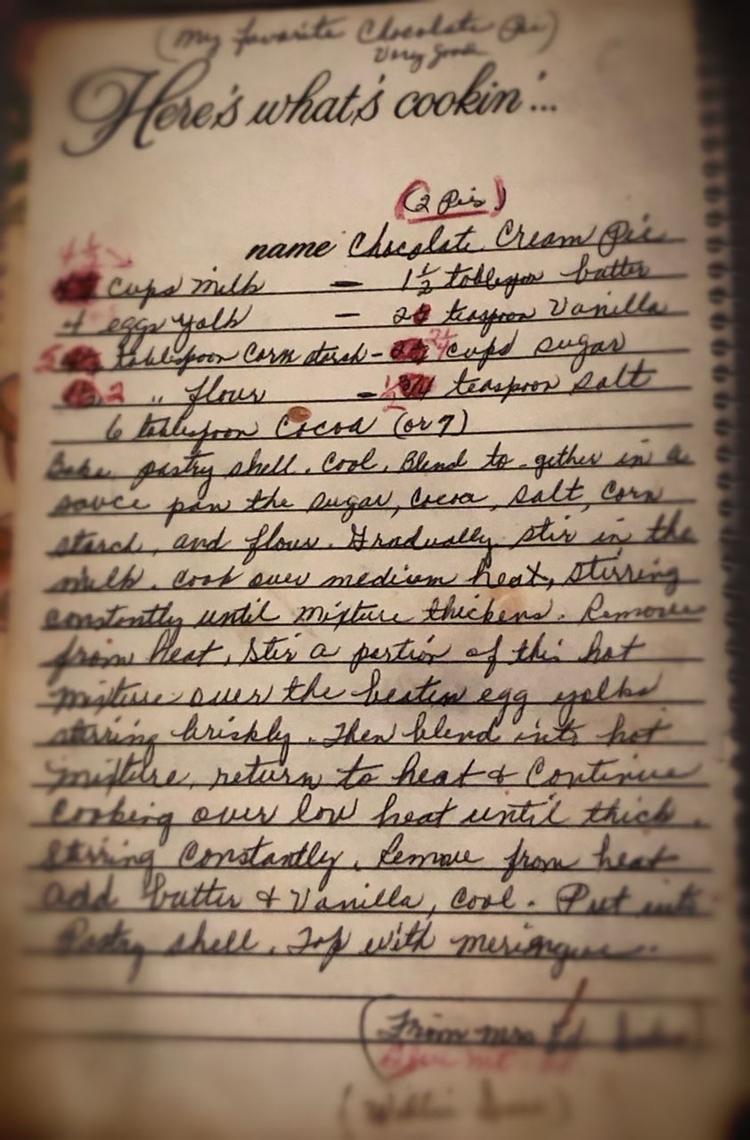 (My Favorite Chocolate Pie)
Very Good
Here's what's cookin'...
(2 Pies)
name Chocolate Cream Pie
4½
cups milk — 1½ tablespoon butter
4 eggs yolk — 2 teaspoon Vanilla
5 tablespoon Corn starch - 2¼ cups sugar
2 " flour - ½ teaspoon salt
6 tablespoon Cocoa (or 7)
Bake pastry shell. Cool. Blend to-gether in a
sauce pan the sugar, Cocoa, Salt, Corn
starch, and flour. Gradually stir in the
milk. Cook over medium heat, stirring
constantly until mixture thickens. Remove
from heat, Stir a portion of this hot
mixture over the beaten egg yolks
stirring briskly. Then blend into hot
mixture, return to heat & Continue
Cooking over low heat until thick.
Stirring Constantly. Remove from heat
add butter & Vanilla, Cool. Put into
Pastry shell. Top with meringue.
From Mrs Ed
Blue Mt.
(Willie